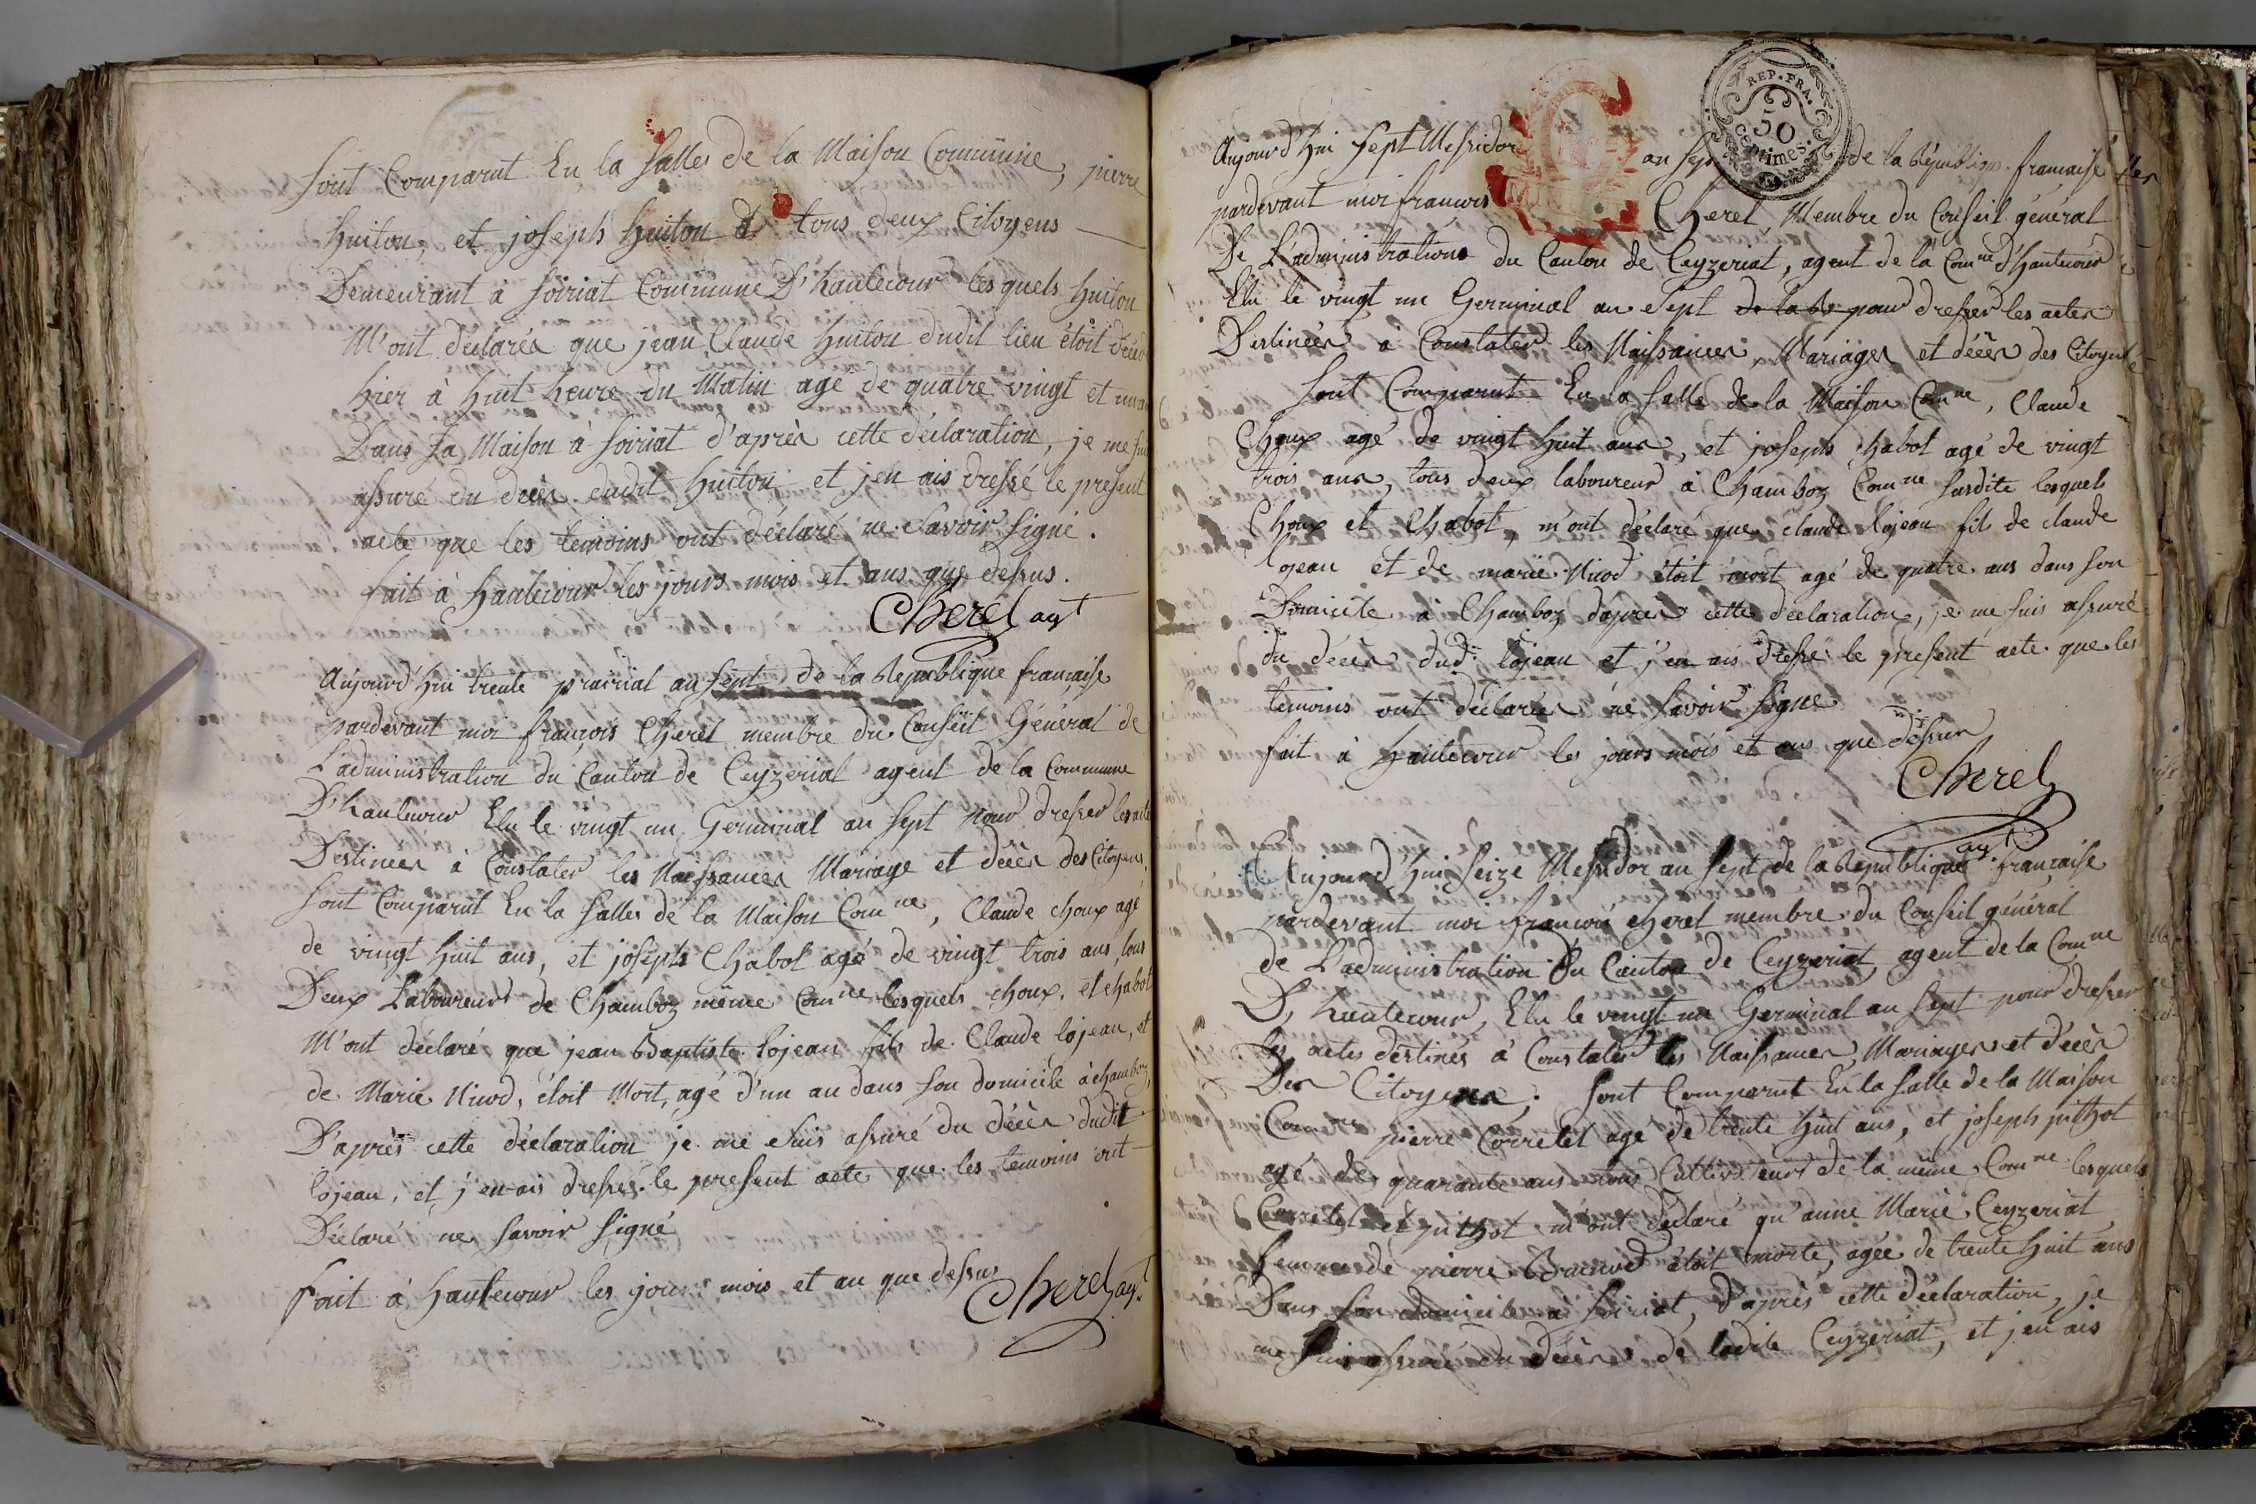 Sont Comparut En la Salles de la Maison Commune, pierre
huiton, et joseph huiton tous deux Citoyens
Demeurant à Soiriat Commune D'hautecour lesquels huiton
M'ont déclarés que jean Claude huiton dudit lieu étoit
hier à huit heure du Matin age de quatre vingt et
Dans Sa Maison à Soiriat d'après cette déclaration, je me
assuré du décès dudit huiton et j'en ais dressé le present
acte que les temoins ont déclaré ne Savoir Signé.
fait à hautecour les jours mois et ans que dessus.
Cherel agt
Aujourd'hui trente prairial an sept de la Republique francaise
pardevant moi françois Cherel membre du Conseil Général de
L'administration du Canton de Ceyzeriat agent de la Commune
D'hautecour Elu le vingt un Germinal an Sept pour dresser les acte
Destinées à Constater les Naissances Mariage et décès des Citoyens
Sont Comparut En la Salles de la Maison Comne, Claude choux agé
de vingt huit ans, et joseph Chabot agé de vingt trois ans, tous
Deux Laboureurs de Chamboz même Comne lesquels choux, et chabot
M'ont déclaré que jean Baptiste lojean fils de Claude lojean, et
de Marie Nicod, étoit Mort, agé d'un an dans son domicile à chamboz,
D'après cette déclaration je me suis assuré du décès dudit
lojean, et j'en ais dressé le present acte que les temoins ont
Déclaré ne Savoir Signé
fait à hautecour les jours mois et an que dessus
Cherel agt
REP. FRA.
50
centimes.
Aujourd'hui Sept Messidor an sep de la République francaise
pardevant moi francois Cherel, Membre du Conseil général
De L'administrations du Canton de Ceyzeriat, agent de la Comne d'hautecour
Elu le vingt un Germinal an Sept de la Re pour dresser les actes
Destinées à Constater les Naissances, Mariages et décès des Citoyens
Sont Comparut En la Salle de la Maison Comne, Claude
Choux agé de vingt huit ans, et joseph Chabot agé de vingt
trois ans, tous deux laboureur à Chamboz Comne susdite lesquels
Choux et Chabot, m'ont déclaré que claude lojean fils de claude
lojean et de marie Nicod étoit mort agé de quatre ans dans son
Domicile à Chamboz d'apres cette déclaration, je me suis assuré
du décès dudt lojean et j'en ais dressé le present acte que les
temoins ont déclarés ne Savoir Signe
fait à hautecour les jours mois et ans que dessus
Cherel
agt
Aujourd'hui Seize Messidor an Sept de la Republique francaise
pardevant moi francois cherel membre du Conseil général
de L'administration du Canton de Ceyzeriat, agent de la Comne
D'hautecour, Elu le vingt un Germinal an Sept pour dresser
les actes destinés à Constater les Naissances, Mariages et décès
Des Citoyens, Sont Comparut En la Salle de la Maison
Comne pierre Corretel agé de trente huit ans, et joseph pithot
agé de quarante ans tous Cultivateurs de la même Comne lesquels
Corretel et pithot m'ont déclaré qu'anne Marie Ceyzeriat
femme de pierre étoit morte, agée de trente huit ans
Dans Son domicile à Soiriat, d'après cette déclaration, je
me suis assuré du décès de ladite Ceyzeriat, et j'en ais